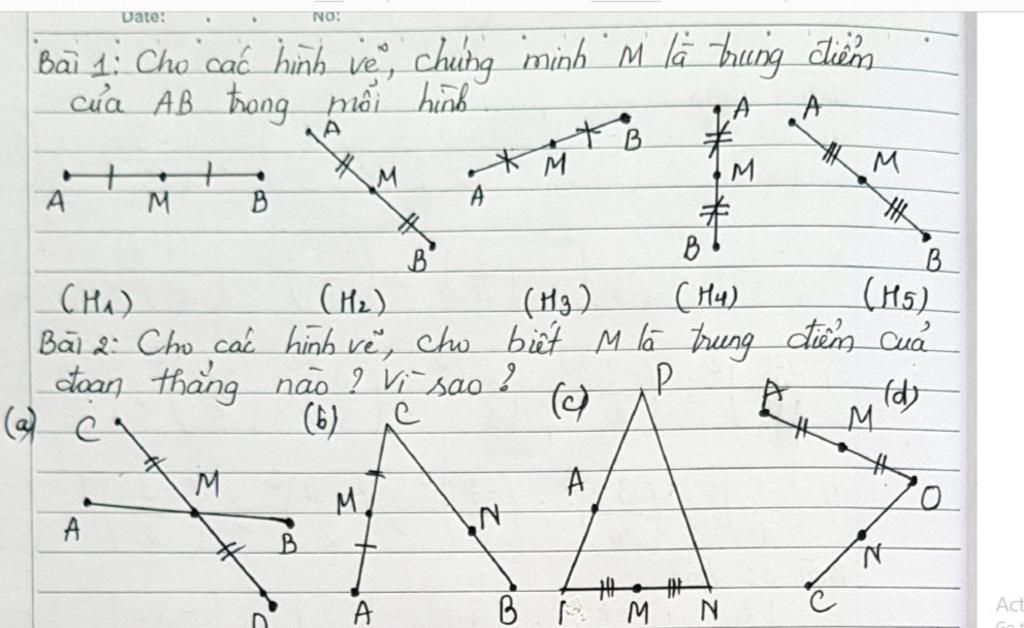 Date: . . No:
Bài 1: Cho các hình vẽ, chứng minh M là trung điểm
của AB trong mỗi hình
A M B
A M B
A M B
A M B
A M B
(H1) (H2) (H3) (H4) (H5)
Bài 2: Cho các hình vẽ, cho biết M là trung điểm của
đoạn thẳng nào? Vì sao?
(a) C M A B D
(b) C M N A B
(c) P A M N
(d) A M O N C
Act